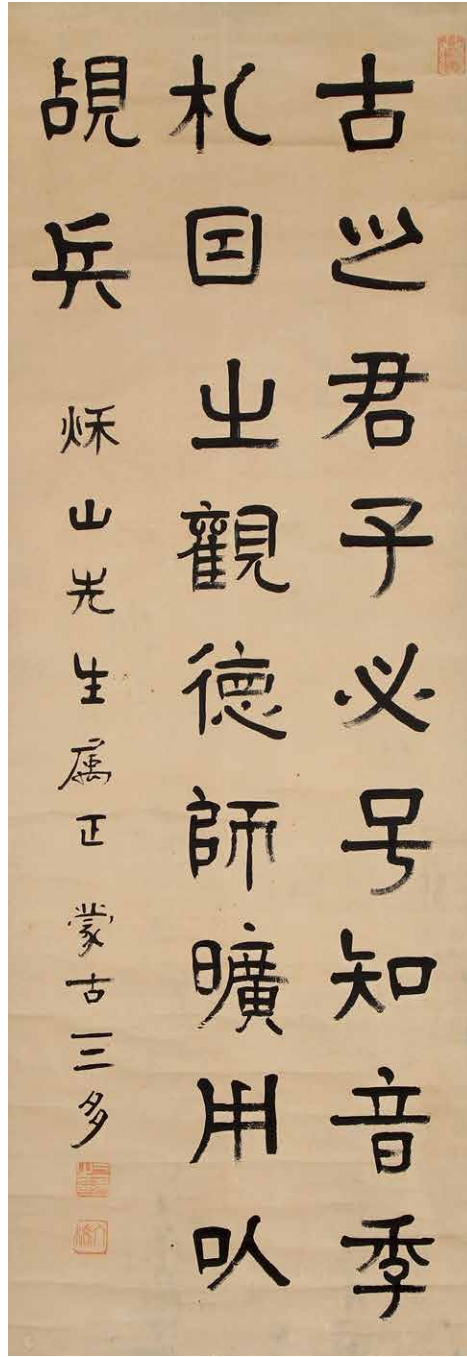 古之君子必号知音季
札囙之觀德師曠用以
覘兵 秌山先生属正 蒙古三多